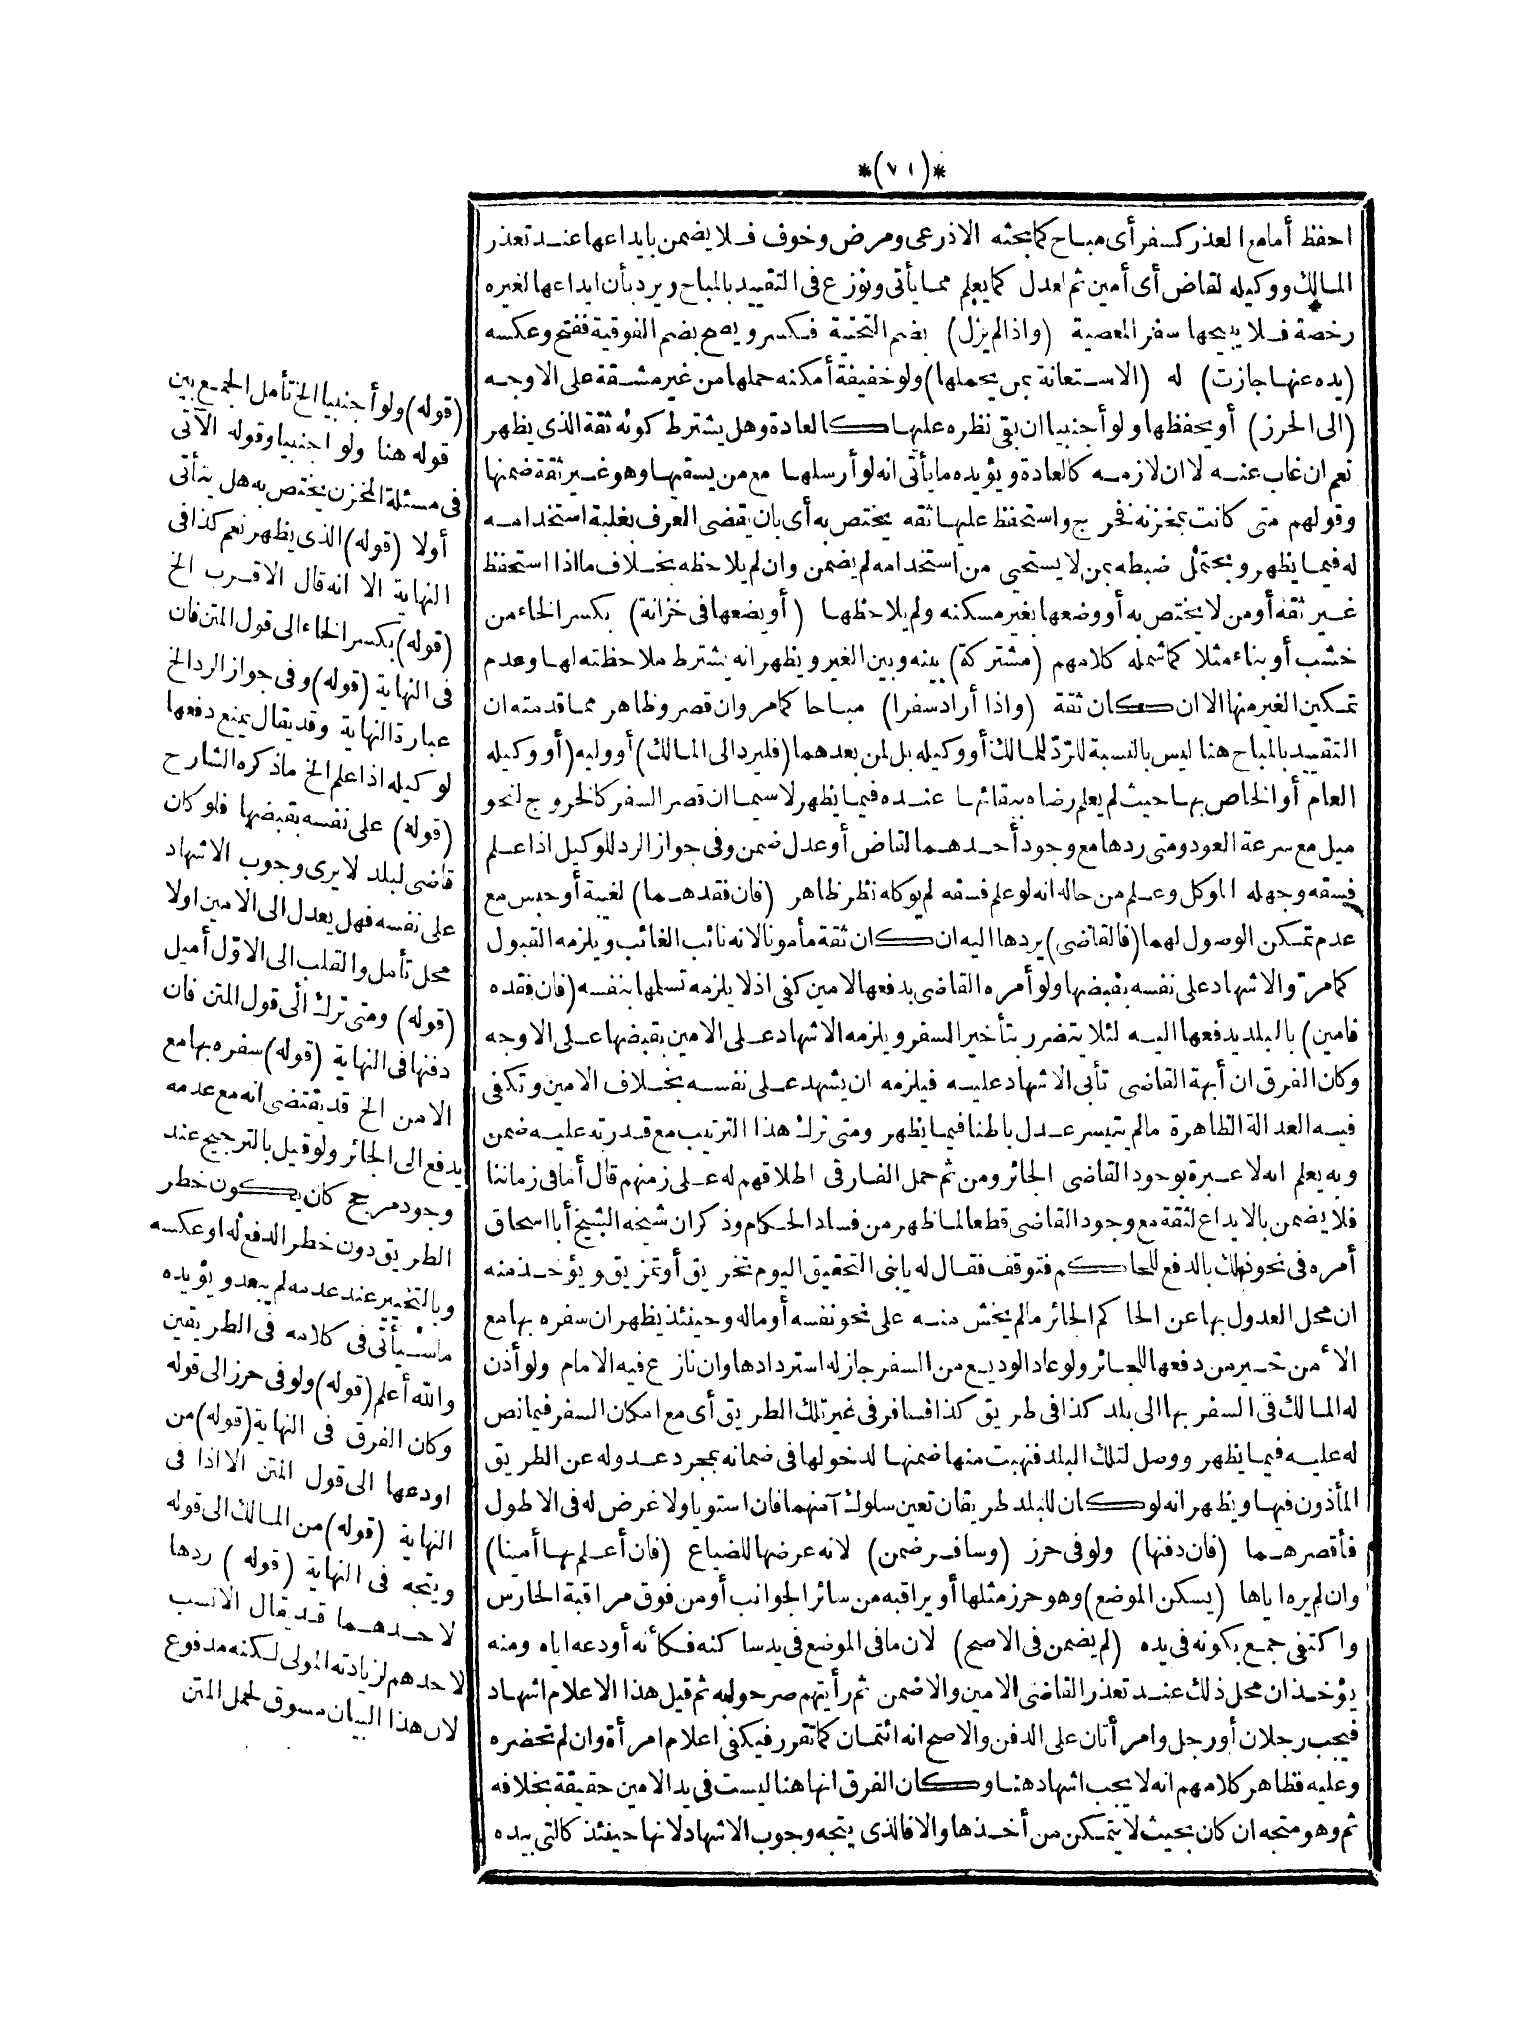 *(٧١)*
احفظ أمامع العذر كسفر أى مباح كما بحثه الاذرعى ومرض وخوف فلا يضمن بايداعها عند تعذر
المالك ووكيله لقاض أى أمين ثم لعدل كما يعلم مما يأتى ونوزع فى التقييد بالمباح ويرد بأن ايداعها لغيره
رخصة فلا يبيحها سفر المعصية (واذا لم يزل) بضم التحتية فكسر ويصح بضم الفوقية ففتح وعكسه
(يده عنها جازت) له (الاستعانة بمن يحملها) ولو خفيفة أمكنه حملها من غير مشقة على الاوجه
(الى الحرز) أو يحفظها ولو أجنبيا ان بقى نظره عليها كالعادة وهل يشترط كونه ثقة الذى يظهر
نعم ان غاب عنه لا ان لازمه كالعادة ويؤيده ما يأتى انه لو أرسلها مع من يسقيها وهو غير ثقة ضمنها
وقولهم متى كانت بمخزنه فخرج واستحفظ عليها ثقه يختص به أى بان يقضى العرف بغلبة استخدامه
له فيما يظهر ويحتمل ضبطه بمن لا يستحيى من استخدامه لم يضمن وان لم يلاحظه بخلاف ما اذا استحفظ
غير ثقة أو من لا يختص به أو وضعها بغير مسكنه ولم يلاحظها (أو يضعها فى خزانة) بكسر الخاء من
خشب أو بناء مثلا كما شمله كلامهم (مشتركة) بينه وبين الغير ويظهر انه يشترط ملاحظته لها وعدم
تمكين الغير منها الا ان كان ثقة (واذا أراد سفرا) مباحا كما مر وان قصر وظاهر مما قدمته ان
التقييد بالمباح هنا ليس بالنسبة للردّ للمالك أو وكيله بل لمن بعدهما (فليرد الى المالك) أو وليه (أو وكيله
العام أو الخاص بها حيث لم يعلم رضاه ببقائها عنده فيما يظهر لا سيما ان قصر السفر كالخروج لنحو
ميل مع سرعة العود ومتى ردها مع وجود أحدهما لقاض أو عدل ضمن وفى جواز الرد للوكيل اذا علم
فسقه وجهله الموكل وعلم من حاله انه لو علم فسقه لم يوكله نظر ظاهر (فان فقدهما) لغيبة أو حبس مع
عدم تمكن الوصول لهما (فالقاضى) يردها اليه ان كان ثقة مأمونا لانه نائب الغائب ويلزمه القبول
كما مرّ والاشهاد على نفسه بقبضها ولو أمره القاضى بدفعها لامين كفى اذ لا يلزمه تسلمها بنفسه (فان فقده
فامين) بالبلد يدفعها اليه لئلا يتضرر بتأخير السفر ويلزمه الاشهاد على الامين بقبضها على الاوجه
وكان الفرق ان أبهة القاضى تأبى الاشهاد عليه فيلزمه ان يشهد على نفسه بخلاف الامين وتكفى
فيه العدالة الظاهرة مالم يتيسر عدل باطنا فيما يظهر ومتى ترك هذا الترتيب مع قدرته عليه ضمن
وبه يعلم انه لا عبرة بوجود القاضى الجائر ومن ثم حمل الفارقى اطلاقهم له على زمنهم قال أما فى زماننا
فلا يضمن بالايداع لثقة مع وجود القاضى قطعا لما ظهر من فساد الحكام وذكر ان شيخه الشيخ أبا اسحاق
أمره فى نحو ذلك بالدفع للحاكم فتوقف فقال له يا بنى التحقيق اليوم تخريق أو تمزيق ويؤخذ منه
ان محل العدول بها عن الحاكم الجائر مالم يخش منه على نحو نفسه أو ماله وحينئذ يظهر ان سفره بها مع
الأمن خير من دفعها للجائر ولو عاد الوديع من السفر جاز له استردادها وان نازع فيه الامام ولو أذن
له المالك فى السفر بها الى بلد كذا فى طريق كذا فسافر فى غير تلك الطريق أى مع امكان السفر فيما نص
له عليه فيما يظهر ووصل لتلك البلد فنهبت منها ضمنها لدخولها فى ضمانه بمجرد عدوله عن الطريق
المأذون فيها ويظهر انه لو كان للبلد طريقان تعين سلوك آمنهما فان استويا ولا غرض له فى الاطول
فأقصرهما (فان دفنها) ولو فى حرز (وسافر ضمن) لانه عرضها للضياع (فان أعلم بها أمينا)
وان لم يره اياها (يسكن الموضع) وهو حرز مثلها أو يراقبه من سائر الجوانب أو من فوق مراقبة الحارس
واكتفى جمع بكونه فى يده (لم يضمن فى الاصح) لان ما فى الموضع فى يد ساكنه فكأنه أودعه اياه ومنه
يؤخذ ان محل ذلك عند تعذر القاضى الامين والا ضمن ثم رأيتهم صرحوا به ثم قيل هذا الاعلام اشهاد
فيجب رجلان أو رجل وامرأتان على الدفن والاصح انه ائتمان كما تقرر فيكفى اعلام امرأة وان لم تحضره
وعليه فظاهر كلامهم انه لا يجب اشهاد هنا وكان الفرق انها هنا ليست فى يد الامين حقيقة بخلافه
ثم وهو متجه ان كان بحيث لا يتمكن من أخذها والا فالذى يتجه وجوب الاشهاد لانها حينئذ كالتى بيده
(قوله) ولو أجنبيا الخ تأمل الجمع بين
قوله هنا ولو اجنبيا وقوله الآتى
فى مسئلة المخزن يختص به هل يتأتى
أولا (قوله) الذى يظهر نعم كذا فى
النهاية الا انه قال الاقرب الخ
(قوله) بكسر الخاء الى قول المتن فان
فى النهاية (قوله) وفى جواز الرد الخ
عبارة النهاية وقد يقال يمنع دفعها
لوكيله اذا علم الخ ما ذكره الشارح
(قوله) على نفسه بقبضها فلو كان
قاضى لبلد لا يرى وجوب الاشهاد
على نفسه فهل يعدل الى الامين اولا
محل تأمل والقلب الى الاوّل أميل
(قوله) ومتى ترك الى قول المتن فان
دفنها فى النهاية (قوله) سفره بها مع
الامن الخ قد يقتضى انه مع عدمه
يدفع الى الجائر ولو قيل بالترجيح عند
وجود مرجح كان يكون خطر
الطريق دون خطر الدفع له او عكسه
وبالتخيير عند عدمه لم يبعد ويؤيده
ما سيأتى فى كلامه فى الطريقين
والله أعلم (قوله) ولو فى حرز الى قوله
وكان الفرق فى النهاية (قوله) من
اودعها الى قول المتن الا اذا فى
النهاية (قوله) من المالك الى قوله
ويتجه فى النهاية (قوله) ردها
لاحدهما قد يقال الانسب
لاحدهم لزيادته المولى لكنه مدفوع
لان هذا البيان مسوق لحمل المتن